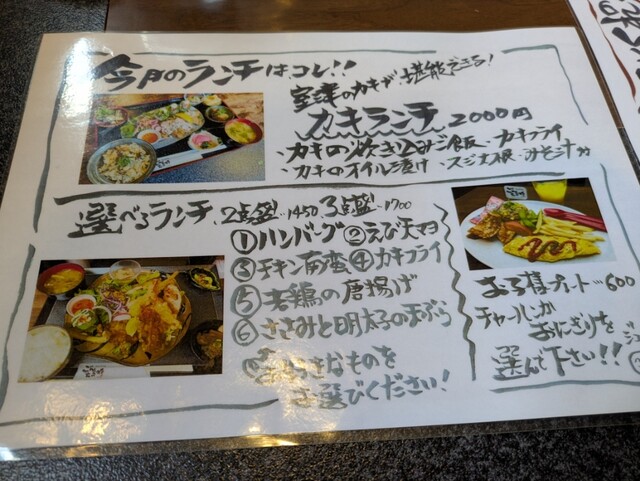 今月のランチはコレ!!
室津のカキが堪能できる!
カキランチ 2000円
・カキの炊き込みご飯・カキフライ
・カキのオイル漬け・スジ大根・みそ汁
選べるランチ 2点盛・1450 3点盛・1700
①ハンバーグ ②えび天マヨ
③チキン南蛮 ④カキフライ
⑤若鶏の唐揚げ
⑥ささみと明太子の天ぷら
お好きなものを
お選びください!
お子様プレート…600
チャーハンか
おにぎりを
選んで下さい!!